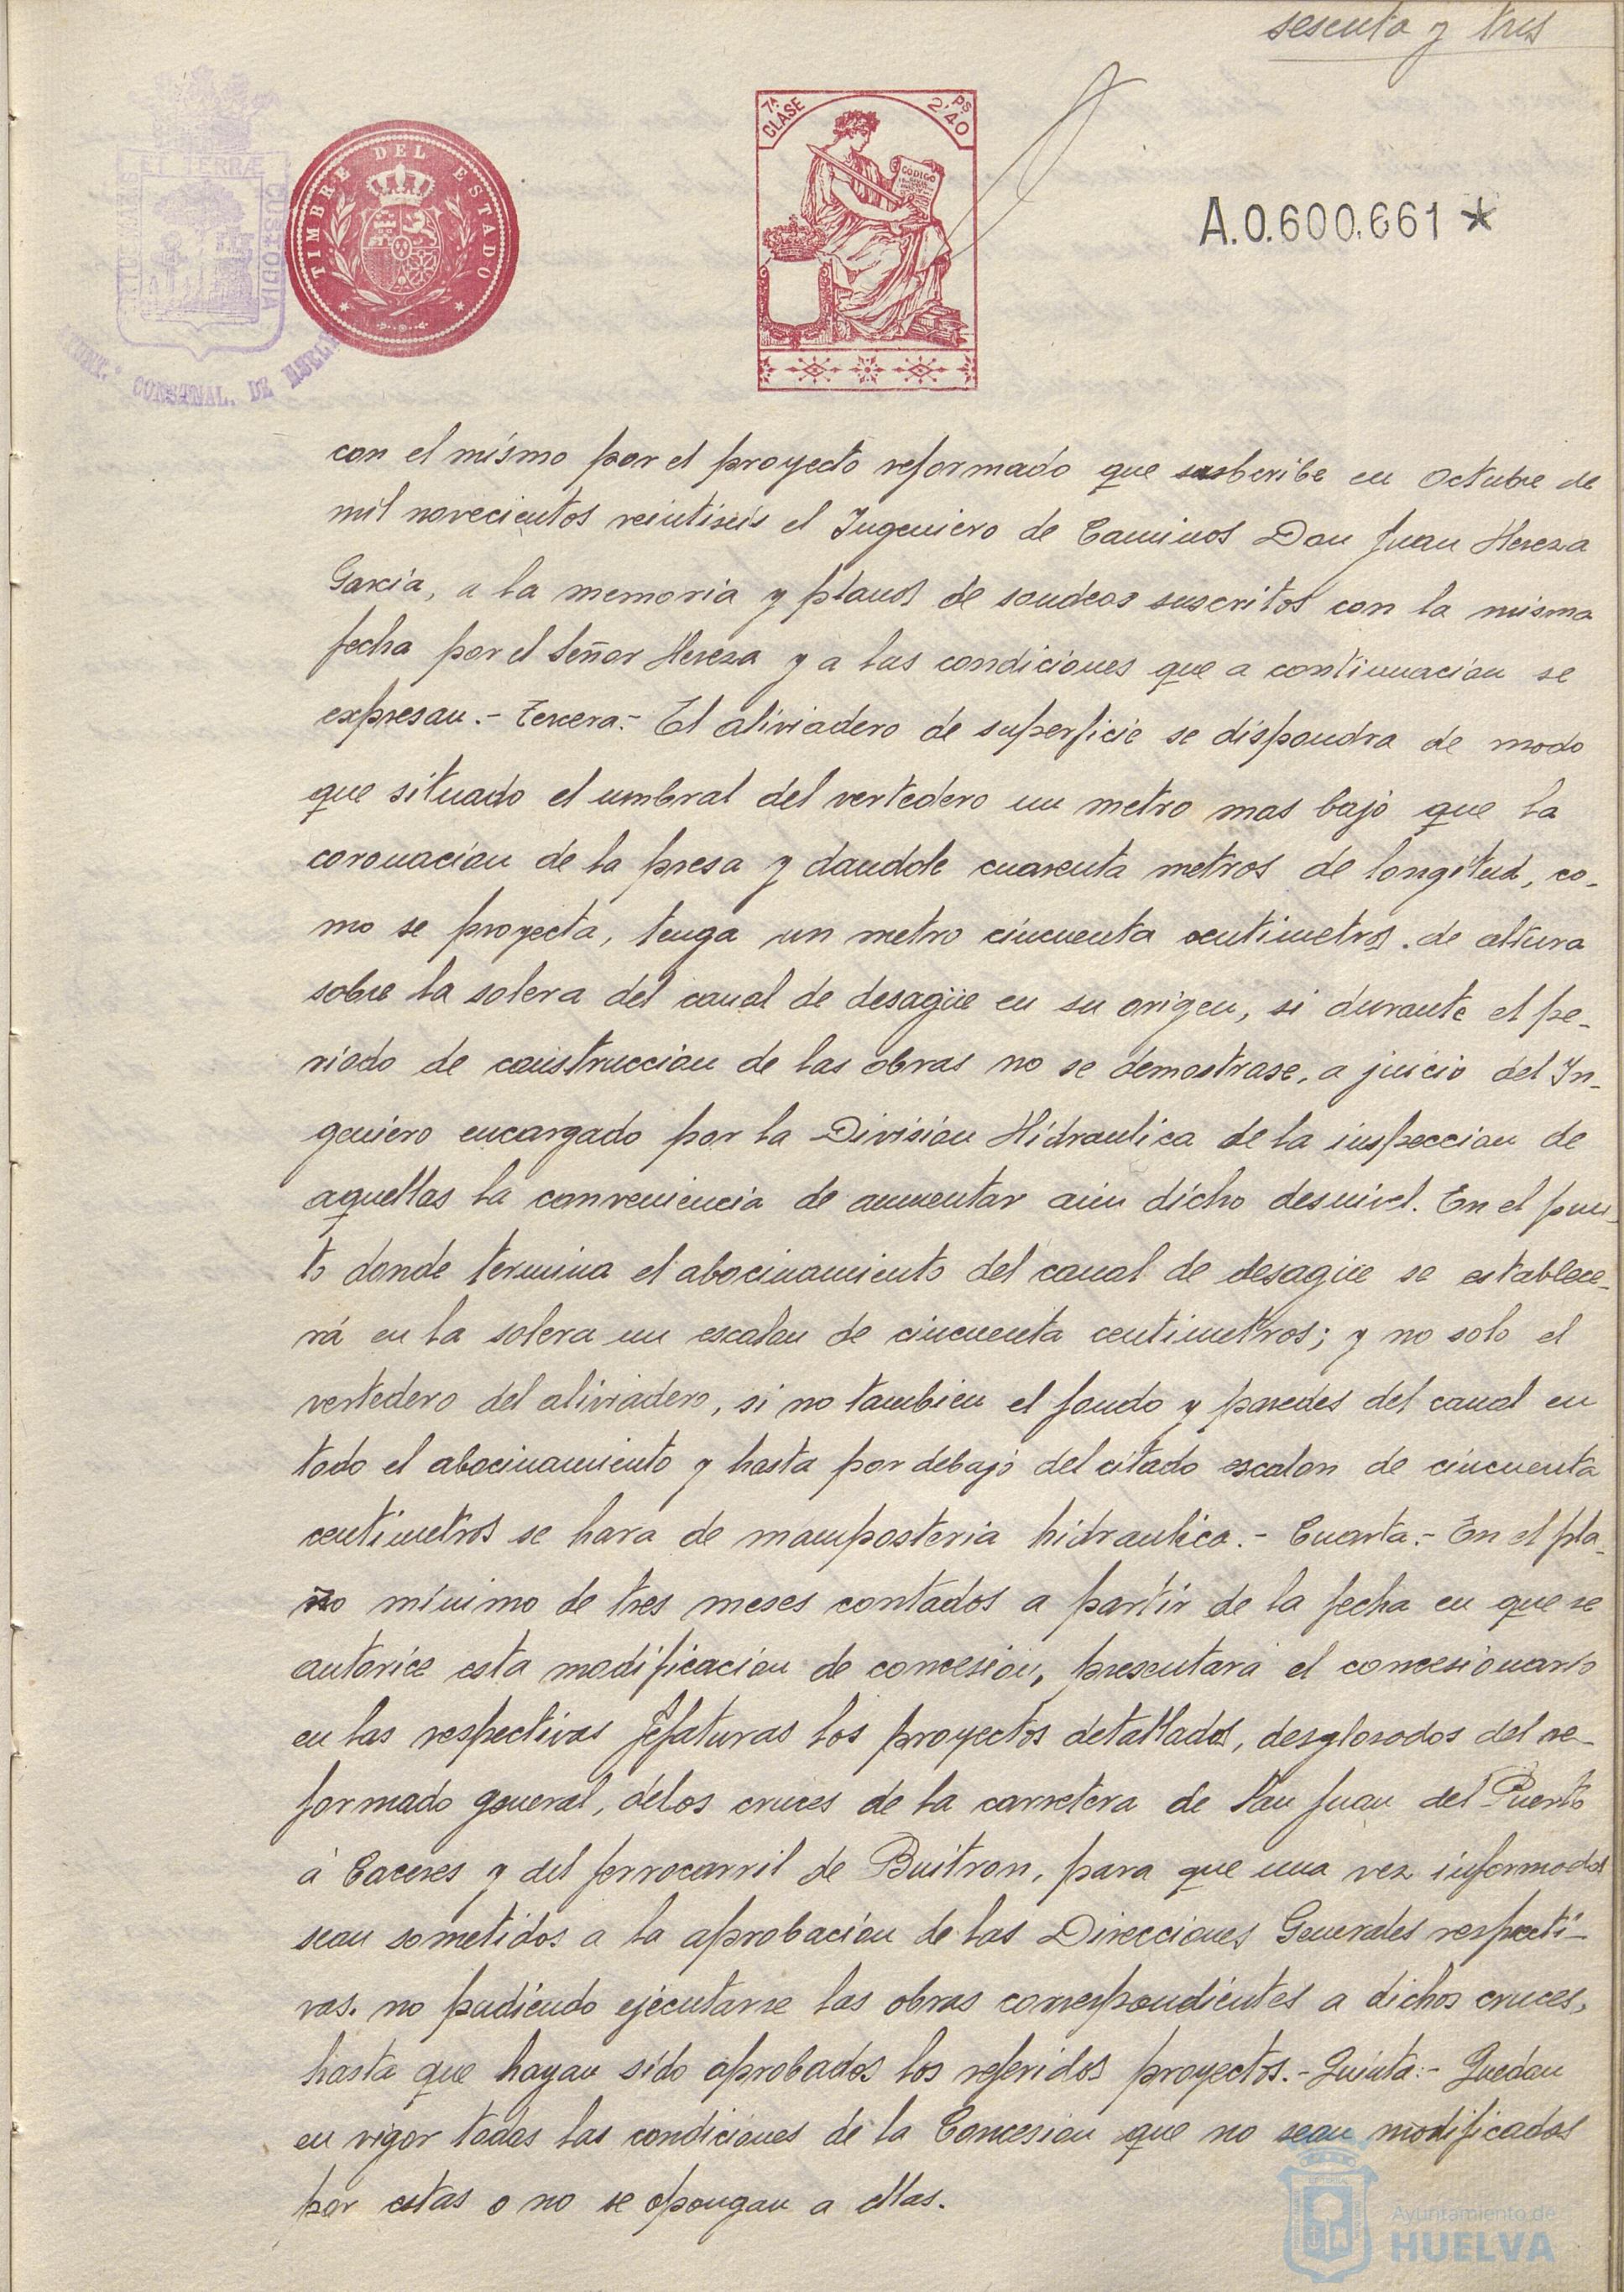 sesenta y tres
TIMBRE DEL ESTADO
7ª CLASE
2'40 PS
CODIGO
A.0.600.661 *
TERRÆ CUSTODIA
CONSTNAL. DE HUELVA
con el mismo por el proyecto reformado que susbcribe en Octubre de
mil novecientos veintiseis el Ingeniero de Caminos Don Juan Hereza
Garcia, a la memoria y planos de sondeos suscritos con la misma
fecha por el Señor Hereza y a las condiciones que a continuacion se
expresan.- Tercera.- El aliviadero de superficie se dispondra de modo
que situado el umbral del vertedero un metro mas bajo que la
coronacion de la presa y dandole cuarenta metros de longitud, co-
mo se proyecta, tenga un metro cincuenta centimetros de altura
sobre la solera del canal de desagüe en su origen, si durante el pe-
riodo de construccion de las obras no se demostrase, a juicio del In-
geniero encargado por la Division Hidraulica de la inspeccion de
aquellas la conveniencia de aumentar aún dicho desnivel. En el pun-
to donde termina el abocinamiento del canal de desagüe se establece-
rá en la solera un escalon de cincuenta centimetros; y no solo el
vertedero del aliviadero, si no tambien el fondo y paredes del canal en
todo el abocinamiento y hasta por debajo del citado escalon de cincuenta
centimetros se hara de mamposteria hidraulica.- Cuarta.- En el pla-
zo minimo de tres meses contados a partir de la fecha en que se
autorice esta modificacion de concesion, presentara el concesionario
en las respectivas Jefaturas los proyectos detallados, desglosados del re-
formado general, delos cruces de la carretera de San Juan del Puerto
á Caceres y del ferrocarril de Buitron, para que una vez informados
sean sometidos a la aprobacion de las Direcciones Generales respecti-
vas. no pudiendo ejecutarse las obras correspondientes a dichos cruces,
hasta que hayan sido aprobados los referidos proyectos.- Quinta:- Quedan
en vigor todas las condiciones de la Concesion que no sean modificadas
por estas o no se opongan a ellas.
Ayuntamiento de
HUELVA